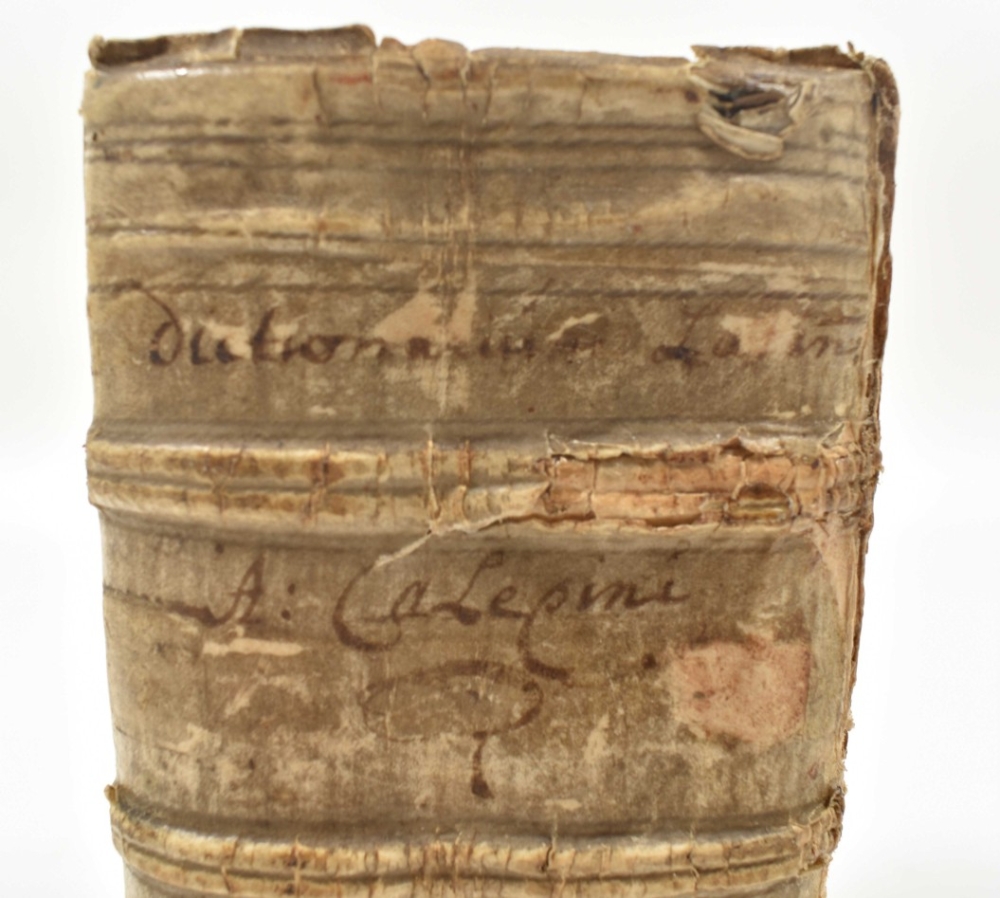 Dictionarium Latin
A: Calepini